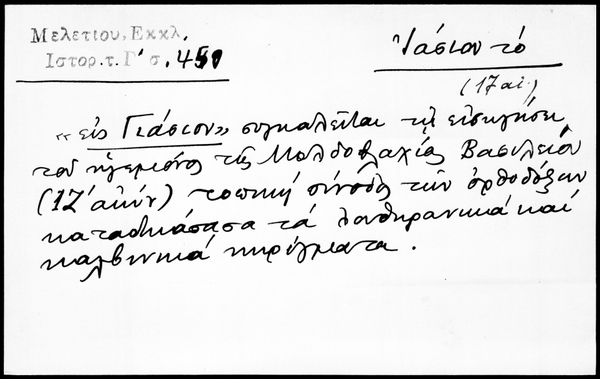 Μελετίου, Εκκλ.
Ἰστορ. τ. Γ' σ. 451
Ἰάσιον τό
(17 αἰ.)
«εἰς Γιάσιον» συγκαλεῖται τῇ εἰσηγήσει
τοῦ ἡγεμόνος τῆς Μολδοβλαχίας Βασιλείου
(17' αἰών) τοπική σύνοδος τῶν ὀρθοδόξων
καταδικάσασα τά λουθηρανικά καί
καλβινικά κηρύγματα.